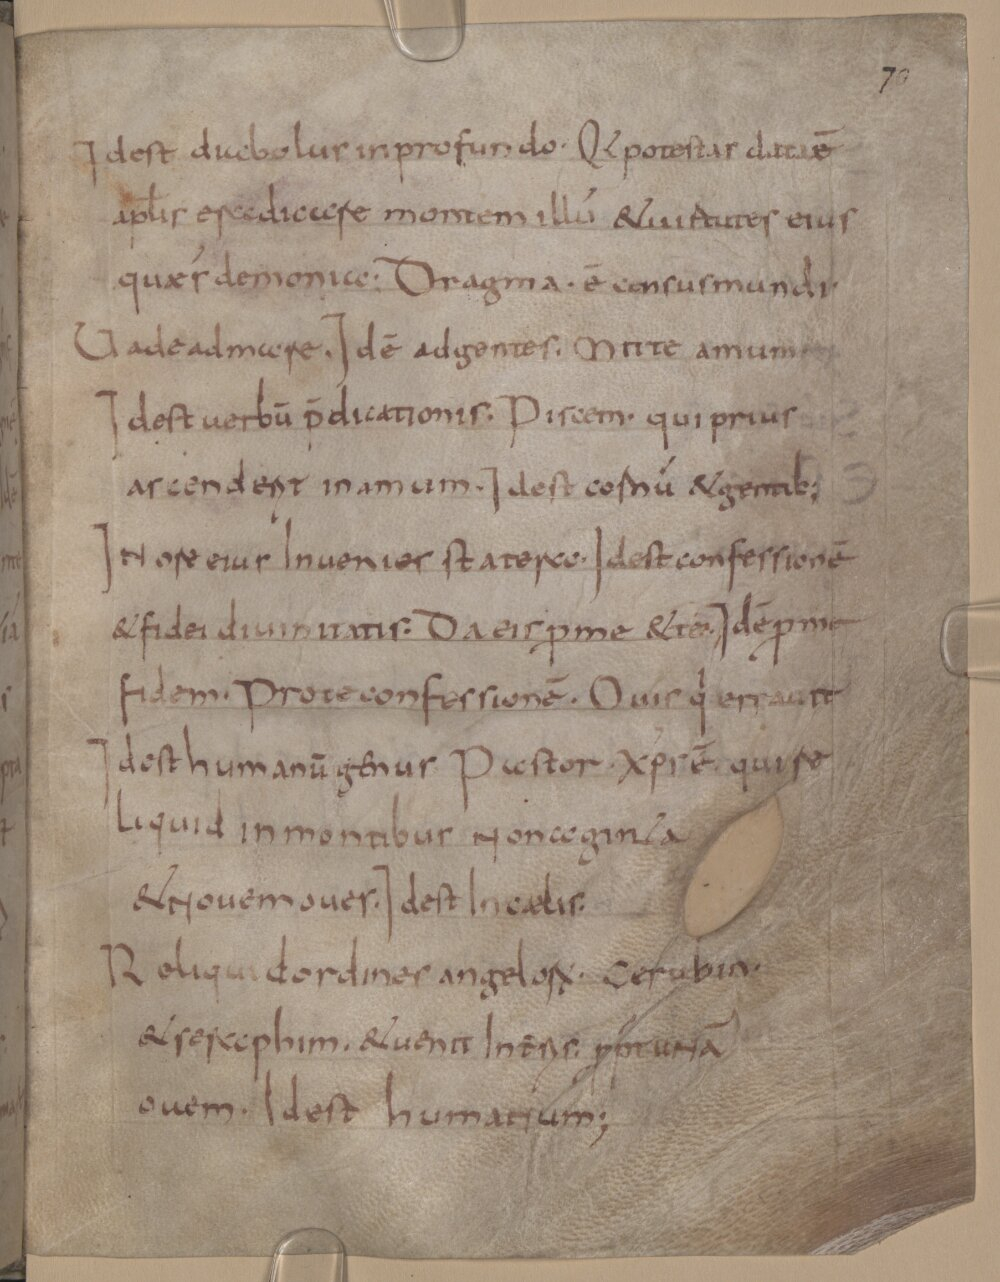 70
Idest diabolus in profundo. Q& potestas data ē
aplis eradicare montem illū & uirtutes eius
quae s̄ demonia. Dragma. ē census mundi
Uade ad mare. I dē ad gentes. Mitte amum
Idest uerbū p̄dicationis. Piscem. qui prius
ascendent in amum. Idest &gentib;
IN ore eius Inuenies statera. Idest confessionē
& fidei diuinitatis. Da eis pro me & te. I dē pro me
fidem. Pro te confessionē. Ouis q̄ errauit
Idest humanū genus Pastor. xp̄s ē. qui re
liquid in montibus Nonaginta
& Nouem oues. Idest In caelis.
Reliquid ordines angelorum. Cerubin.
& seraphim. & uenit In terris
ouem. Idest humanum;